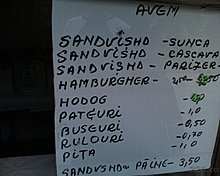 AVEM
SANDVISHD -SUNCA
SANDVISHD -CASCAVA
SANDVISHD -PARIZER
HAMBURGHER-
HODOG
PATEURI -1,0
BUSEURI -0,50
RULOURI -0,70
PITA -1,0
SANDVSHD PÂINE-3,50